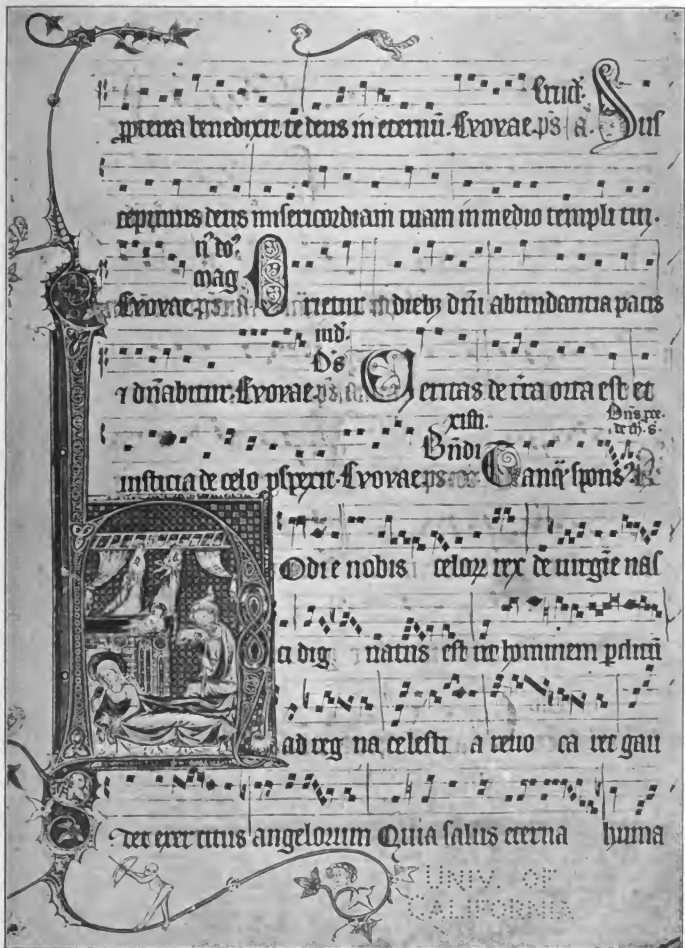 ppterea benedixit te deus in eternū. Evovae. ps a. Sus
cepimus deus misericordiam tuam in medio templi tui.
Evovae. ps Orietur in dieb; dn̄i abundantia pacis
mag
⁊ dn̄abitur. Evovae. ps Veritas de tr̄a orta est et
iusticia de celo pspexit. Evovae ps Tanq̄ spons
Hodie nobis celoꝝ rex de uirgīe nas
ci dig natus est ut hominem pditū
ad reg na celesti a reuo ca ret gau
det exer citus angelorum Quia salus eterna huma
UNIV. OF
CALIFORNIA